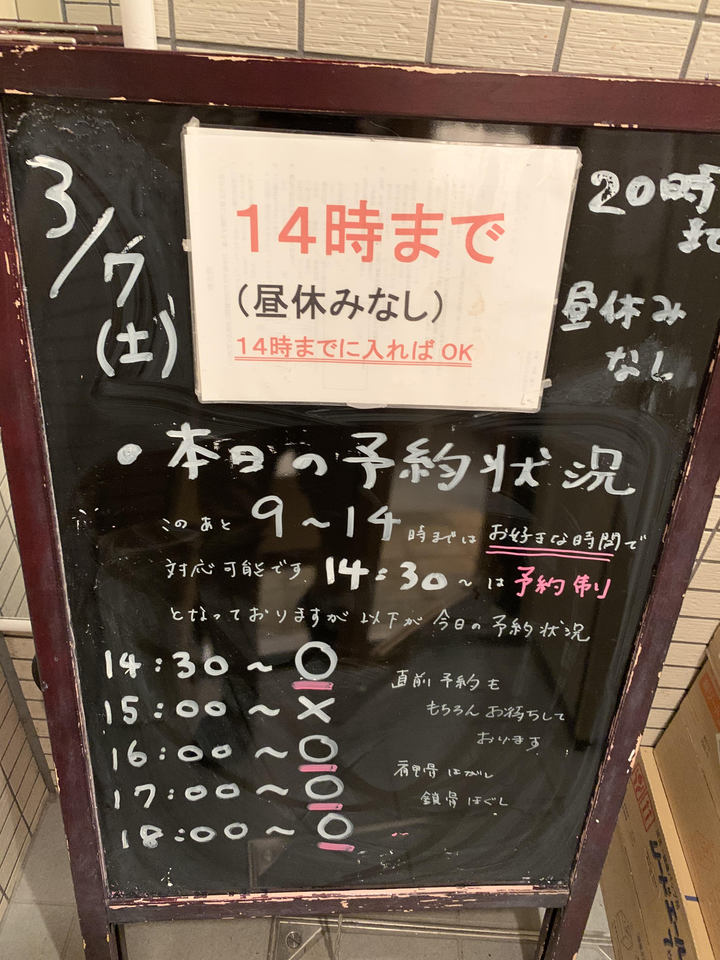 3/7
(土)
14時まで
(昼休みなし)
14時までに入ればOK
20時
まで
昼休み
なし
・本日の予約状況
このあと 9~14時までは お好きな時間で
対応可能です 14:30~は 予約制
となっておりますが 以下が 今日の予約状況
14:30~○
15:00~×
16:00~○
17:00~○
18:00~○
直前予約も
もちろんお待ちして
おります
肩甲骨はがし
鎖骨ほぐし